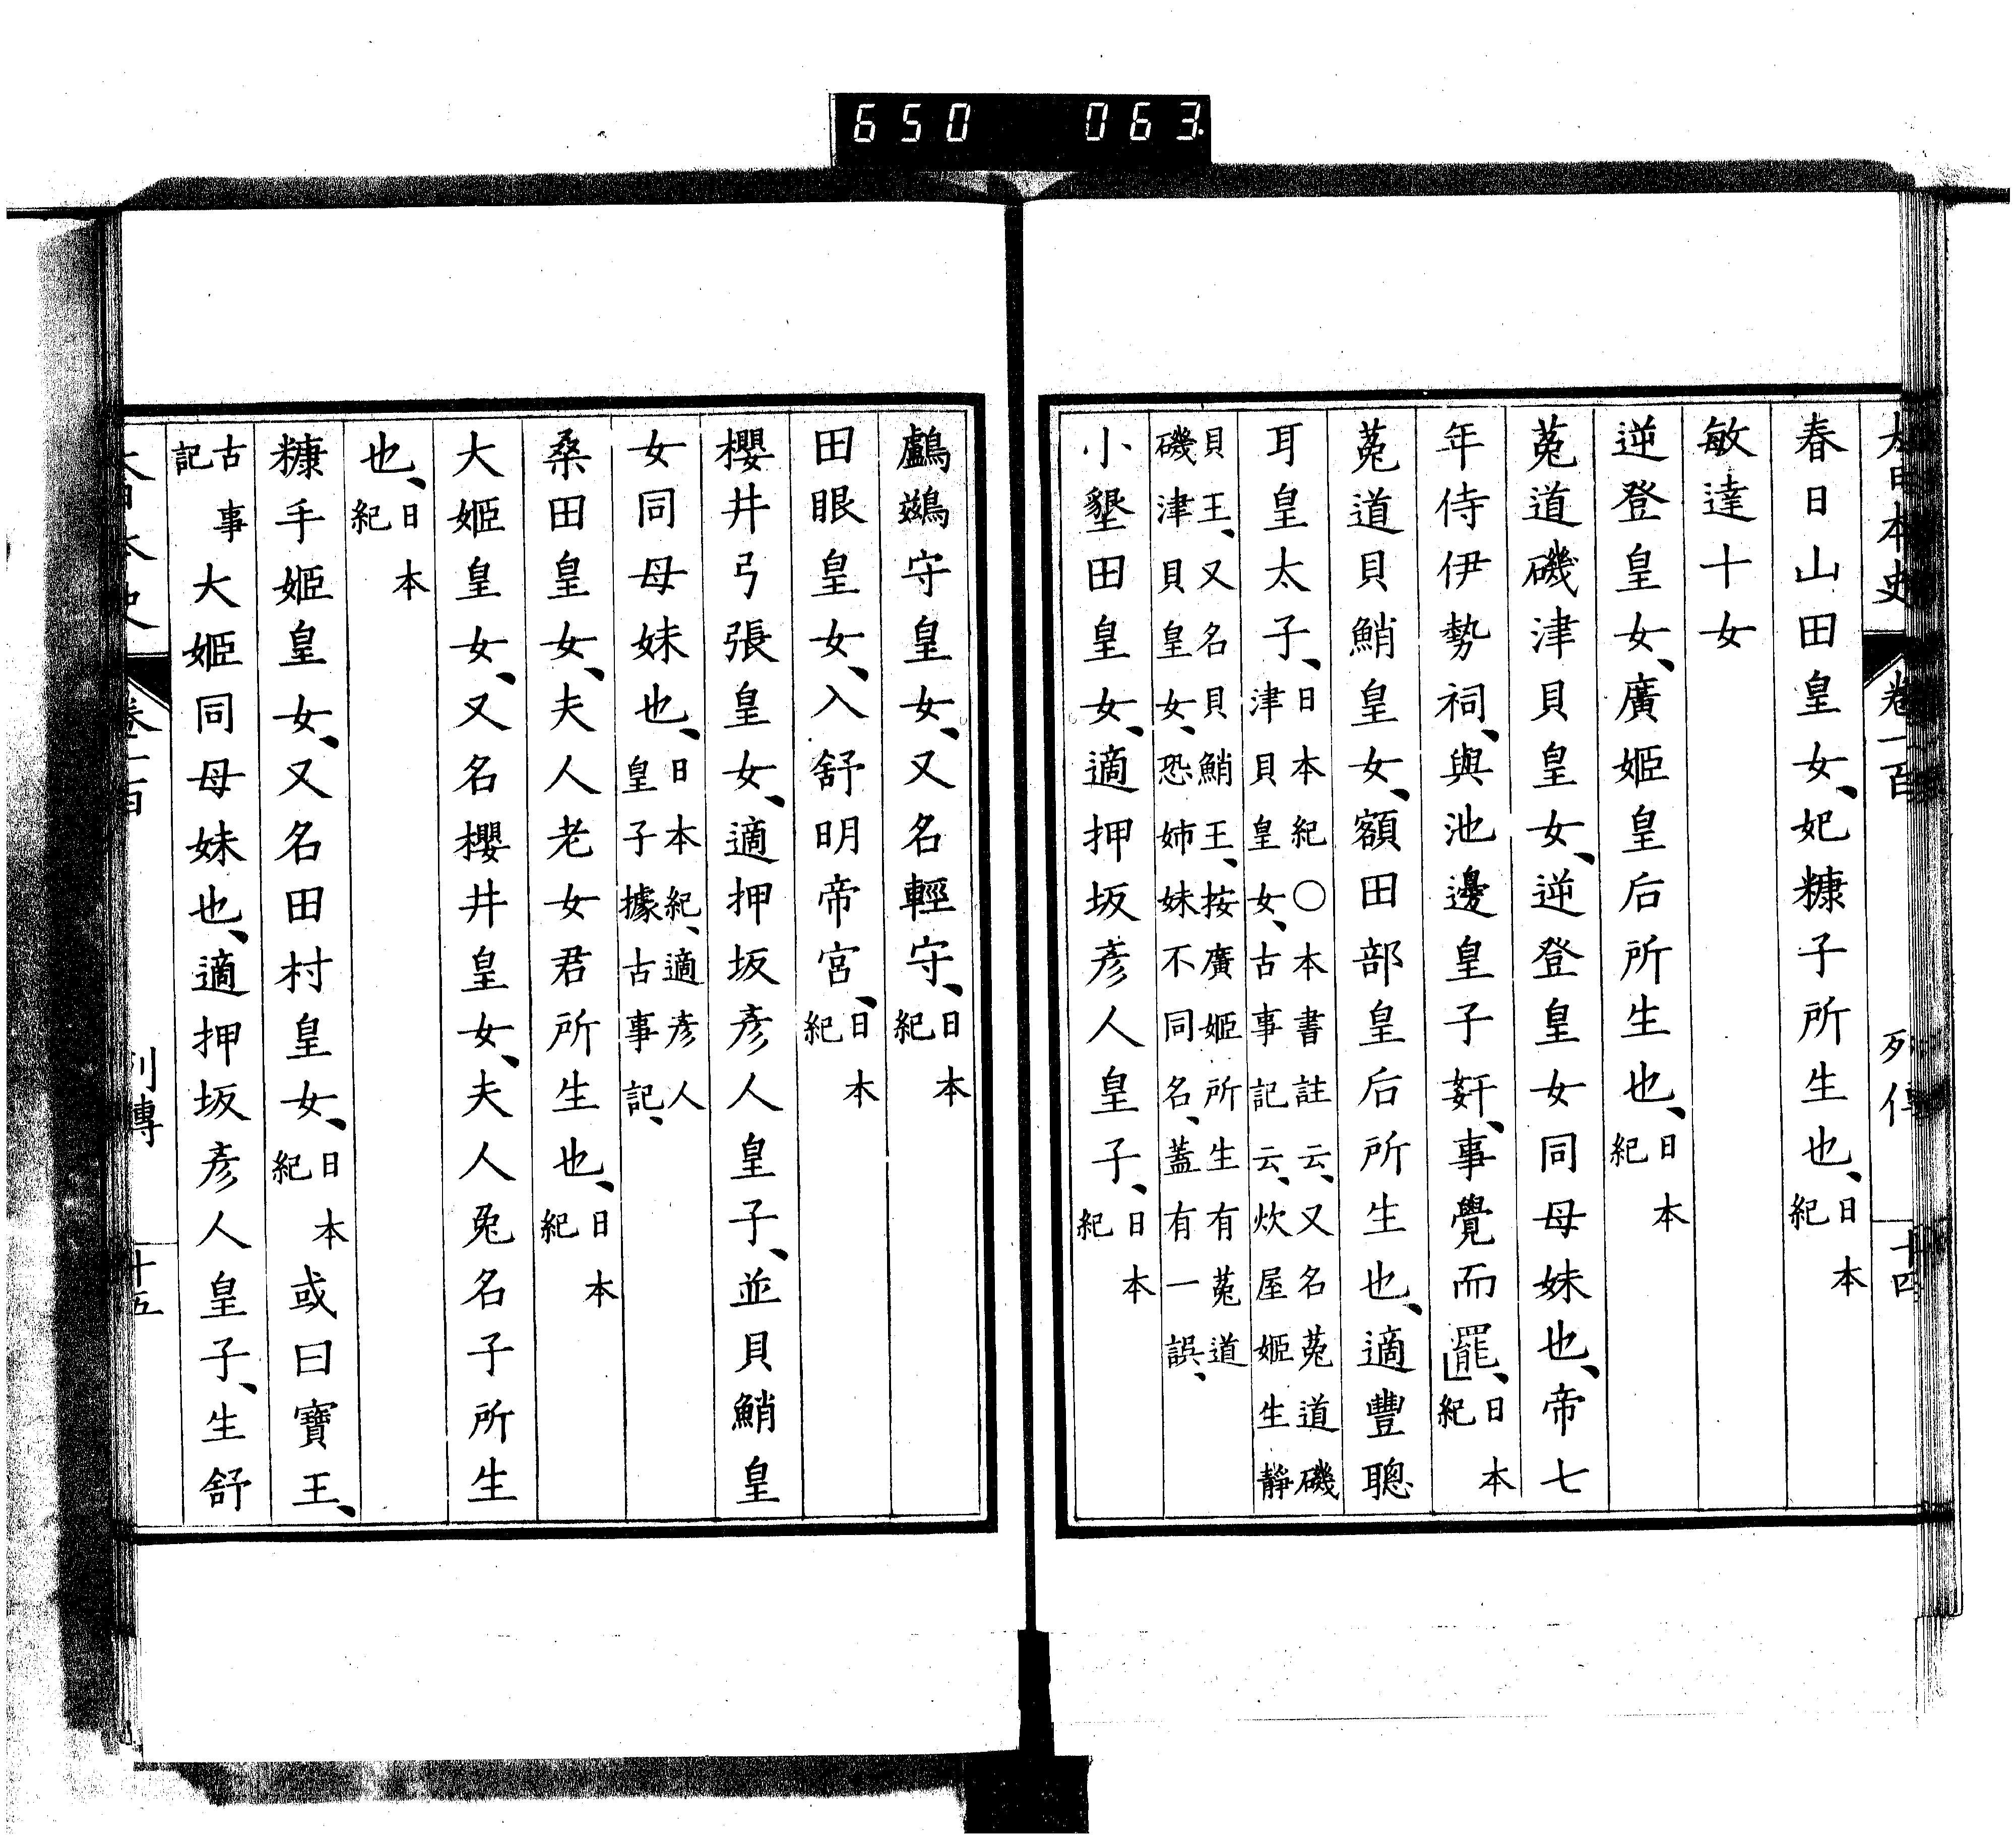 650 063
大日本史 卷一百 列傳 十四
春日山田皇女、妃糠子所生也、日本紀
敏達十女
逆登皇女、廣姬皇后所生也、日本紀
菟道磯津貝皇女、逆登皇女同母妹也、帝七
年侍伊勢祠、與池邊皇子姧、事覺而罷、日本紀
菟道貝鮹皇女、額田部皇后所生也、適豐聰
耳皇太子、日本紀○本書註云、又名菟道磯津貝皇女、古事記云、炊屋姬生靜
貝王、又名貝鮹王、按廣姬所生有菟道磯津貝皇女、恐姉妹不同名、蓋有一誤、
小墾田皇女、適押坂彥人皇子、日本紀
鸕鷀守皇女、又名輕守、日本紀
田眼皇女、入舒明帝宮、日本紀
櫻井弓張皇女、適押坂彥人皇子、並貝鮹皇
女同母妹也、日本紀、適彥人皇子據古事記、
桑田皇女、夫人老女君所生也、日本紀
大姬皇女、又名櫻井皇女、夫人兎名子所生
也、日本紀
糠手姬皇女、又名田村皇女、日本紀或曰寶王、
古事記大姬同母妹也、適押坂彥人皇子、生舒
大日本史 卷一百 列傳 十五